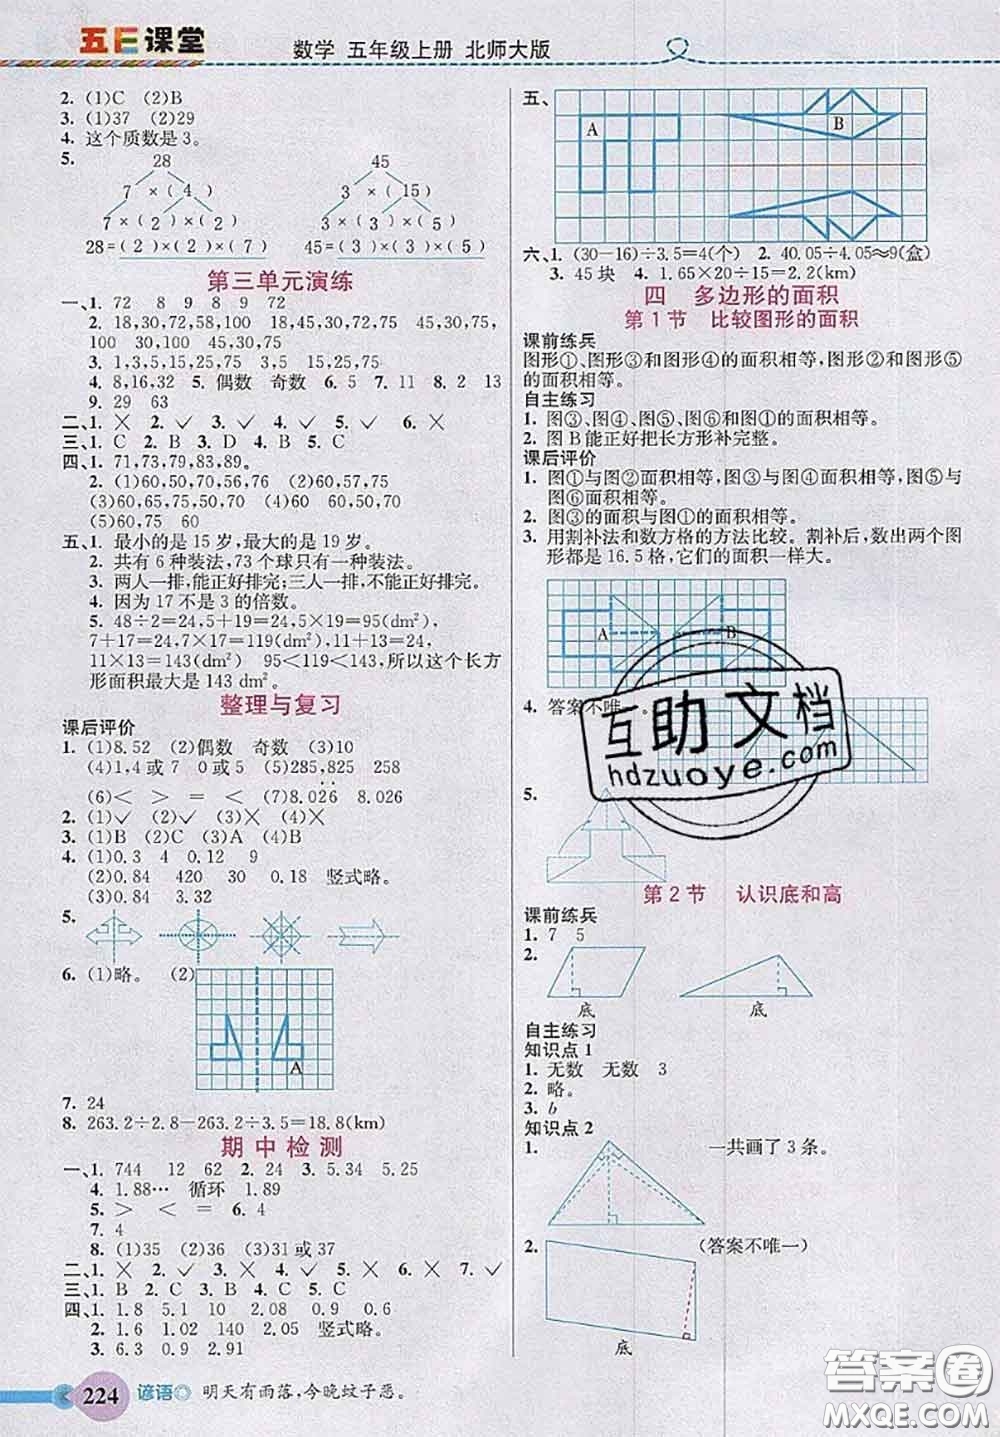 五E课堂
数学 五年级上册 北师大版
2. (1)C (2)B
3. (1)37 (2)29
4. 这个质数是3。
5. 28 45
7 ×( 4 ) 3 ×( 15 )
7 ×( 2 )×( 2 ) 3 ×( 3 )×( 5 )
28=( 2 )×( 2 )×( 7 ) 45=( 3 )×( 3 )×( 5 )
第三单元演练
一、1. 72 8 9 8 9 72
2. 18,30,72,58,100 18,45,30,75 45,30,75,
100 30,100 45,30,75
3. 1,3,5,15,25,75 3,15 15,25,75
4. 8,16,32 5. 偶数 奇数 6. 5 7. 11 8. 2 13
9. 29 63
二、1. ╳ 2. ✓ 3. ✓ 4. ✓ 5. ✓ 6. ╳
三、1. C 2. B 3. D 4. B 5. C
四、1. 71,73,79,83,89。
2. (1)60,50,70,56,76 (2)60,75
(3)60,65,75,50,70 (4)60 50,70
(5)60,75 60
五、1. 最小的是15岁,最大的是19岁。
2. 共有6种装法,73个球只有一种装法。
3. 两人一排,能正好排完;三人一排,不能正好排完。
4. 因为17不是3的倍数。
5. 48÷2=24,5+19=24,5×19=95(dm²),
7+17=24,7×17=119(dm²),11+13=24,
11×13=143(dm²) 95<119<143,所以这个长方
形面积最大是143 dm²。
整理与复习
课后评价
1. (1)8.52 (2)偶数 奇数 (3)10
(4)1,4或7 0或5 (5)285,825 258
(6)< > = < (7)8.0̇26̇ 8.026
2. (1)✓ (2)✓ (3)╳ (4)╳
3. (1)B (2)C (3)A (4)B
4. (1)0.3 4 0.12 9
(2)0.84 420 30 0.18 竖式略。
(3)0.84 3.32
5.
6. (1)略。 (2)
A
7. 24
8. 263.2÷2.8-263.2÷3.5=18.8(km)
期中检测
一、1. 744 12 62 2. 24 3. 5.34 5.25
4. 1.88… 循环 1.89
5. > < = 6. 4
7. 4
8. (1)35 (2)36 (3)31或37
二、1. ╳ 2. ✓ 3. ╳ 4. ╳ 5. ╳ 6. ╳ 7. ✓
三、1. B 2. C 3. B 4. C 5. C
四、1. 1.8 5.1 10 2.08 0.9 0.6
2. 1.6 1.02 140 2.05 竖式略。
3. 6.3 0.9 9
224 谚语 明天有雨落,今晚蚊子恶。
五、
A B
六、1. (30-16)÷3.5=4(个) 2. 40.05÷4.05≈9(盒)
3. 45块 4. 1.65×20÷15=2.2(km)
四 多边形的面积
第1节 比较图形的面积
课前练兵
图形①、图形③和图形④的面积相等,图形②和图形⑤
的面积相等。
自主练习
1. 图③、图④、图⑤、图⑥和图①的面积相等。
2. 图B能正好把长方形补完整。
课后评价
1. 图①与图②面积相等,图③与图④面积相等,图⑤与
图⑥面积相等。
2. 图③的面积与图①的面积相等。
3. 用割补法和数方格的方法比较。割补后,数出两个图
形都是16.5格,它们的面积一样大。
A B
4. 答案不唯一
5.
互助文档
hdzuoye.com
第2节 认识底和高
课前练兵
1. 7 5
2.
底 底
自主练习
知识点1
1. 无数 无数 3
2. 略。
3. b
知识点2
1. 一共画了3条。
2. (答案不唯一)
底
答案圈
MXQE.COM